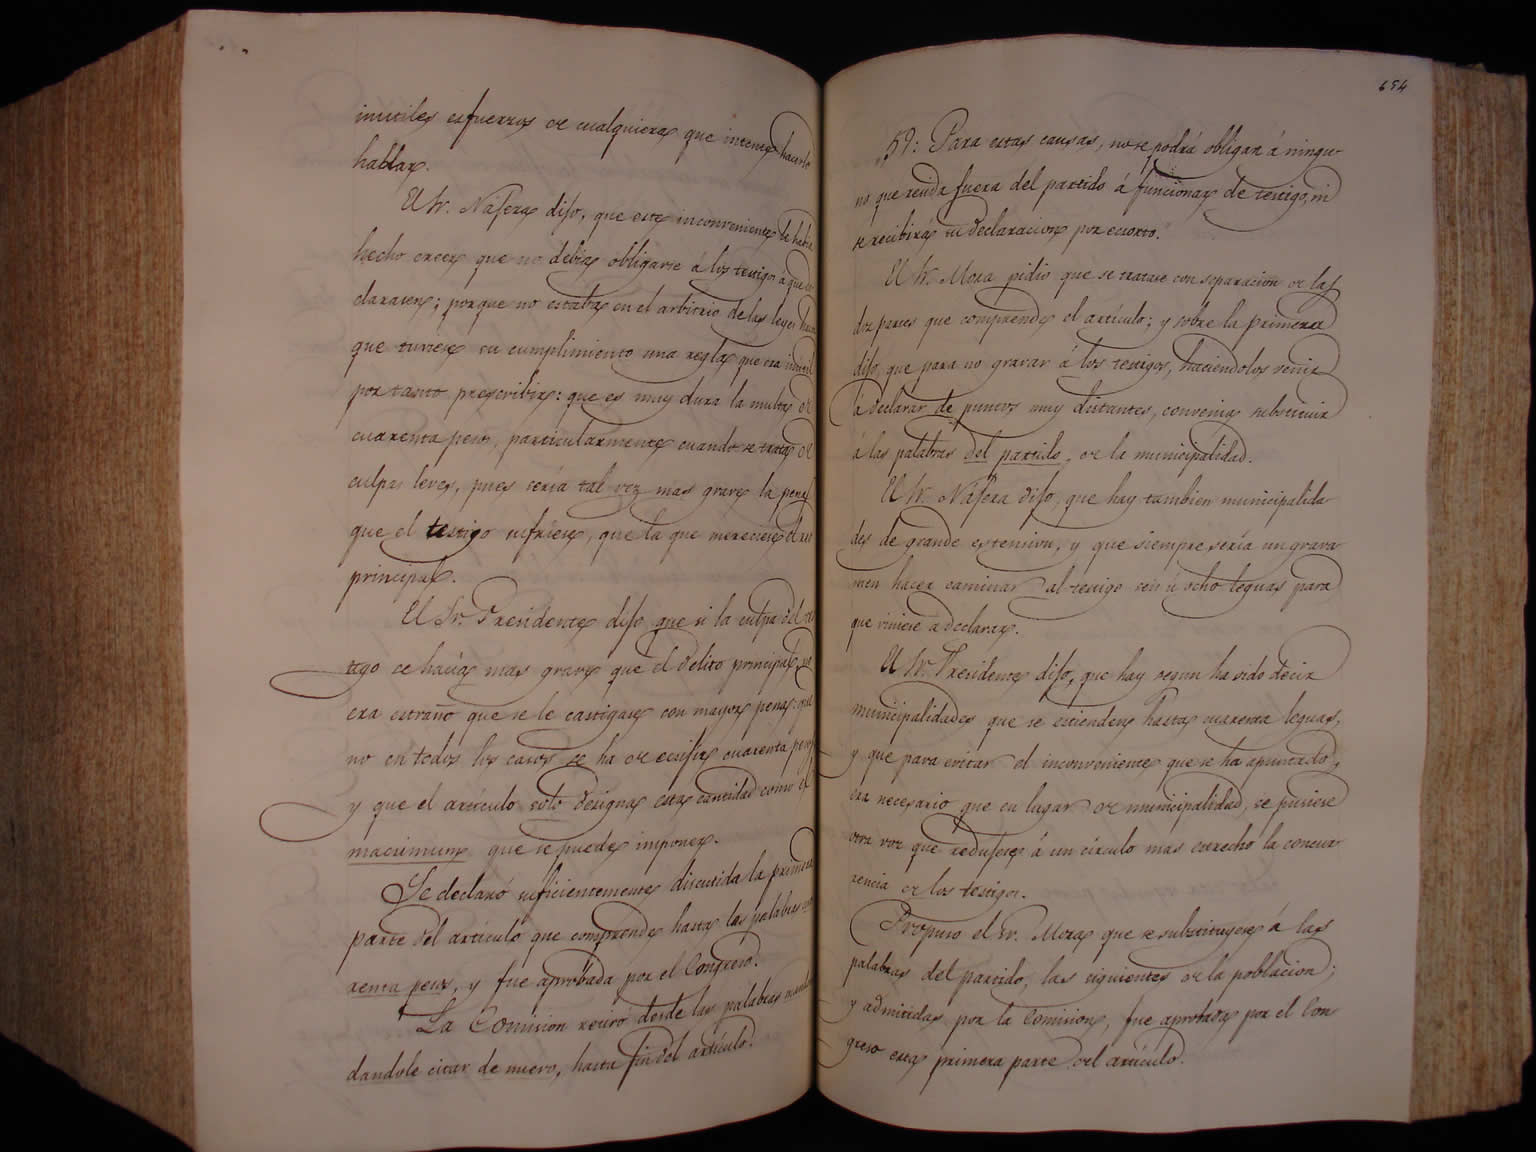 inutiles esfuerzos de cualquiera que intente hacerlo
hablar.
El Sr. Nájera dijo, que este inconveniente le había
hecho creer que no debía obligarse á los testigos á que de
clarasen; porque no estaba en el arbitrio de las leyes hacer
que tuviese su cumplimiento una regla que era inutil
por tanto prescribir: que es muy dura la multa de
cuarenta pesos, particularmente cuando se trata de
culpas leves, pues sería tal vez mas grave la pena
que el testigo sufriese, que la que mereciese el reo
principal.
El Sr. Presidente dijo que si la culpa del tes
tigo se hacía mas grave que el delito principal, no
era estraño que se le castigase con mayor pena: que
no en todos los casos se ha de ecsijir cuarenta pesos
y que el artículo solo designa esta cantidad como el
macsimum que se puede imponer.
Se declaró suficientemente discutida la primera
parte del artículo que comprende hasta las palabras cua
renta pesos, y fue aprobada por el Congreso.
La Comision retiró desde las palabras mandan
dandole citar de nuevo, hasta fin del artículo.
654
59: Para estas causas, no se podrá obligar á ningu-
no que resida fuera del partido á funcionar de testigo, ni
se recibirá su declaracion por escrito.
El Sr. Mora pidió que se tratase con separacion de las
dos partes que comprende el artículo; y sobre la primera
dijo, que para no gravar á los testigos, haciendolos venir
á declarar de puntos muy distantes, convenia substituir
á las palabras del partido, de la municipalidad.
El Sr. Nájera dijo, que hay tambien municipalida
des de grande estension, y que siempre sería un grava
men hacer caminar al testigo seis ú ocho leguas para
que viniese a declarar.
El Sr. Presidente dijo, que hay segun ha oido decir
municipalidades que se estienden hasta cuarenta leguas,
y que para evitar el inconveniente que se ha apuntado,
era necesario que en lugar de municipalidad, se pusiese
otra voz que redujese á un círculo mas estrecho la concur
rencia de los testigos.
Propuso el Sr. Mora que se substituyese á las
palabras del partido, las siguientes de la poblacion;
y admitida por la Comision, fue aprobada por el Con
greso esta primera parte del artículo.